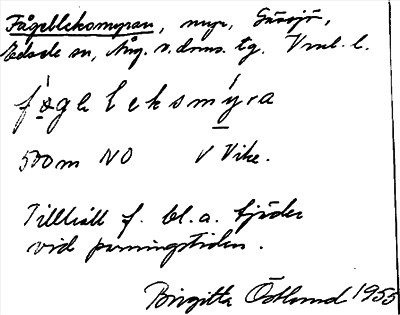 Fågellekomyran, myr, Gåssjö,
Edsele sn, Ång. v. doms. tg. Vnl. l.
fågelleksmýra
500 m NO V Vike.
Tillhåll f. bl.a. tjäder
vid parningstiden.
Birgitta Östlund 1955